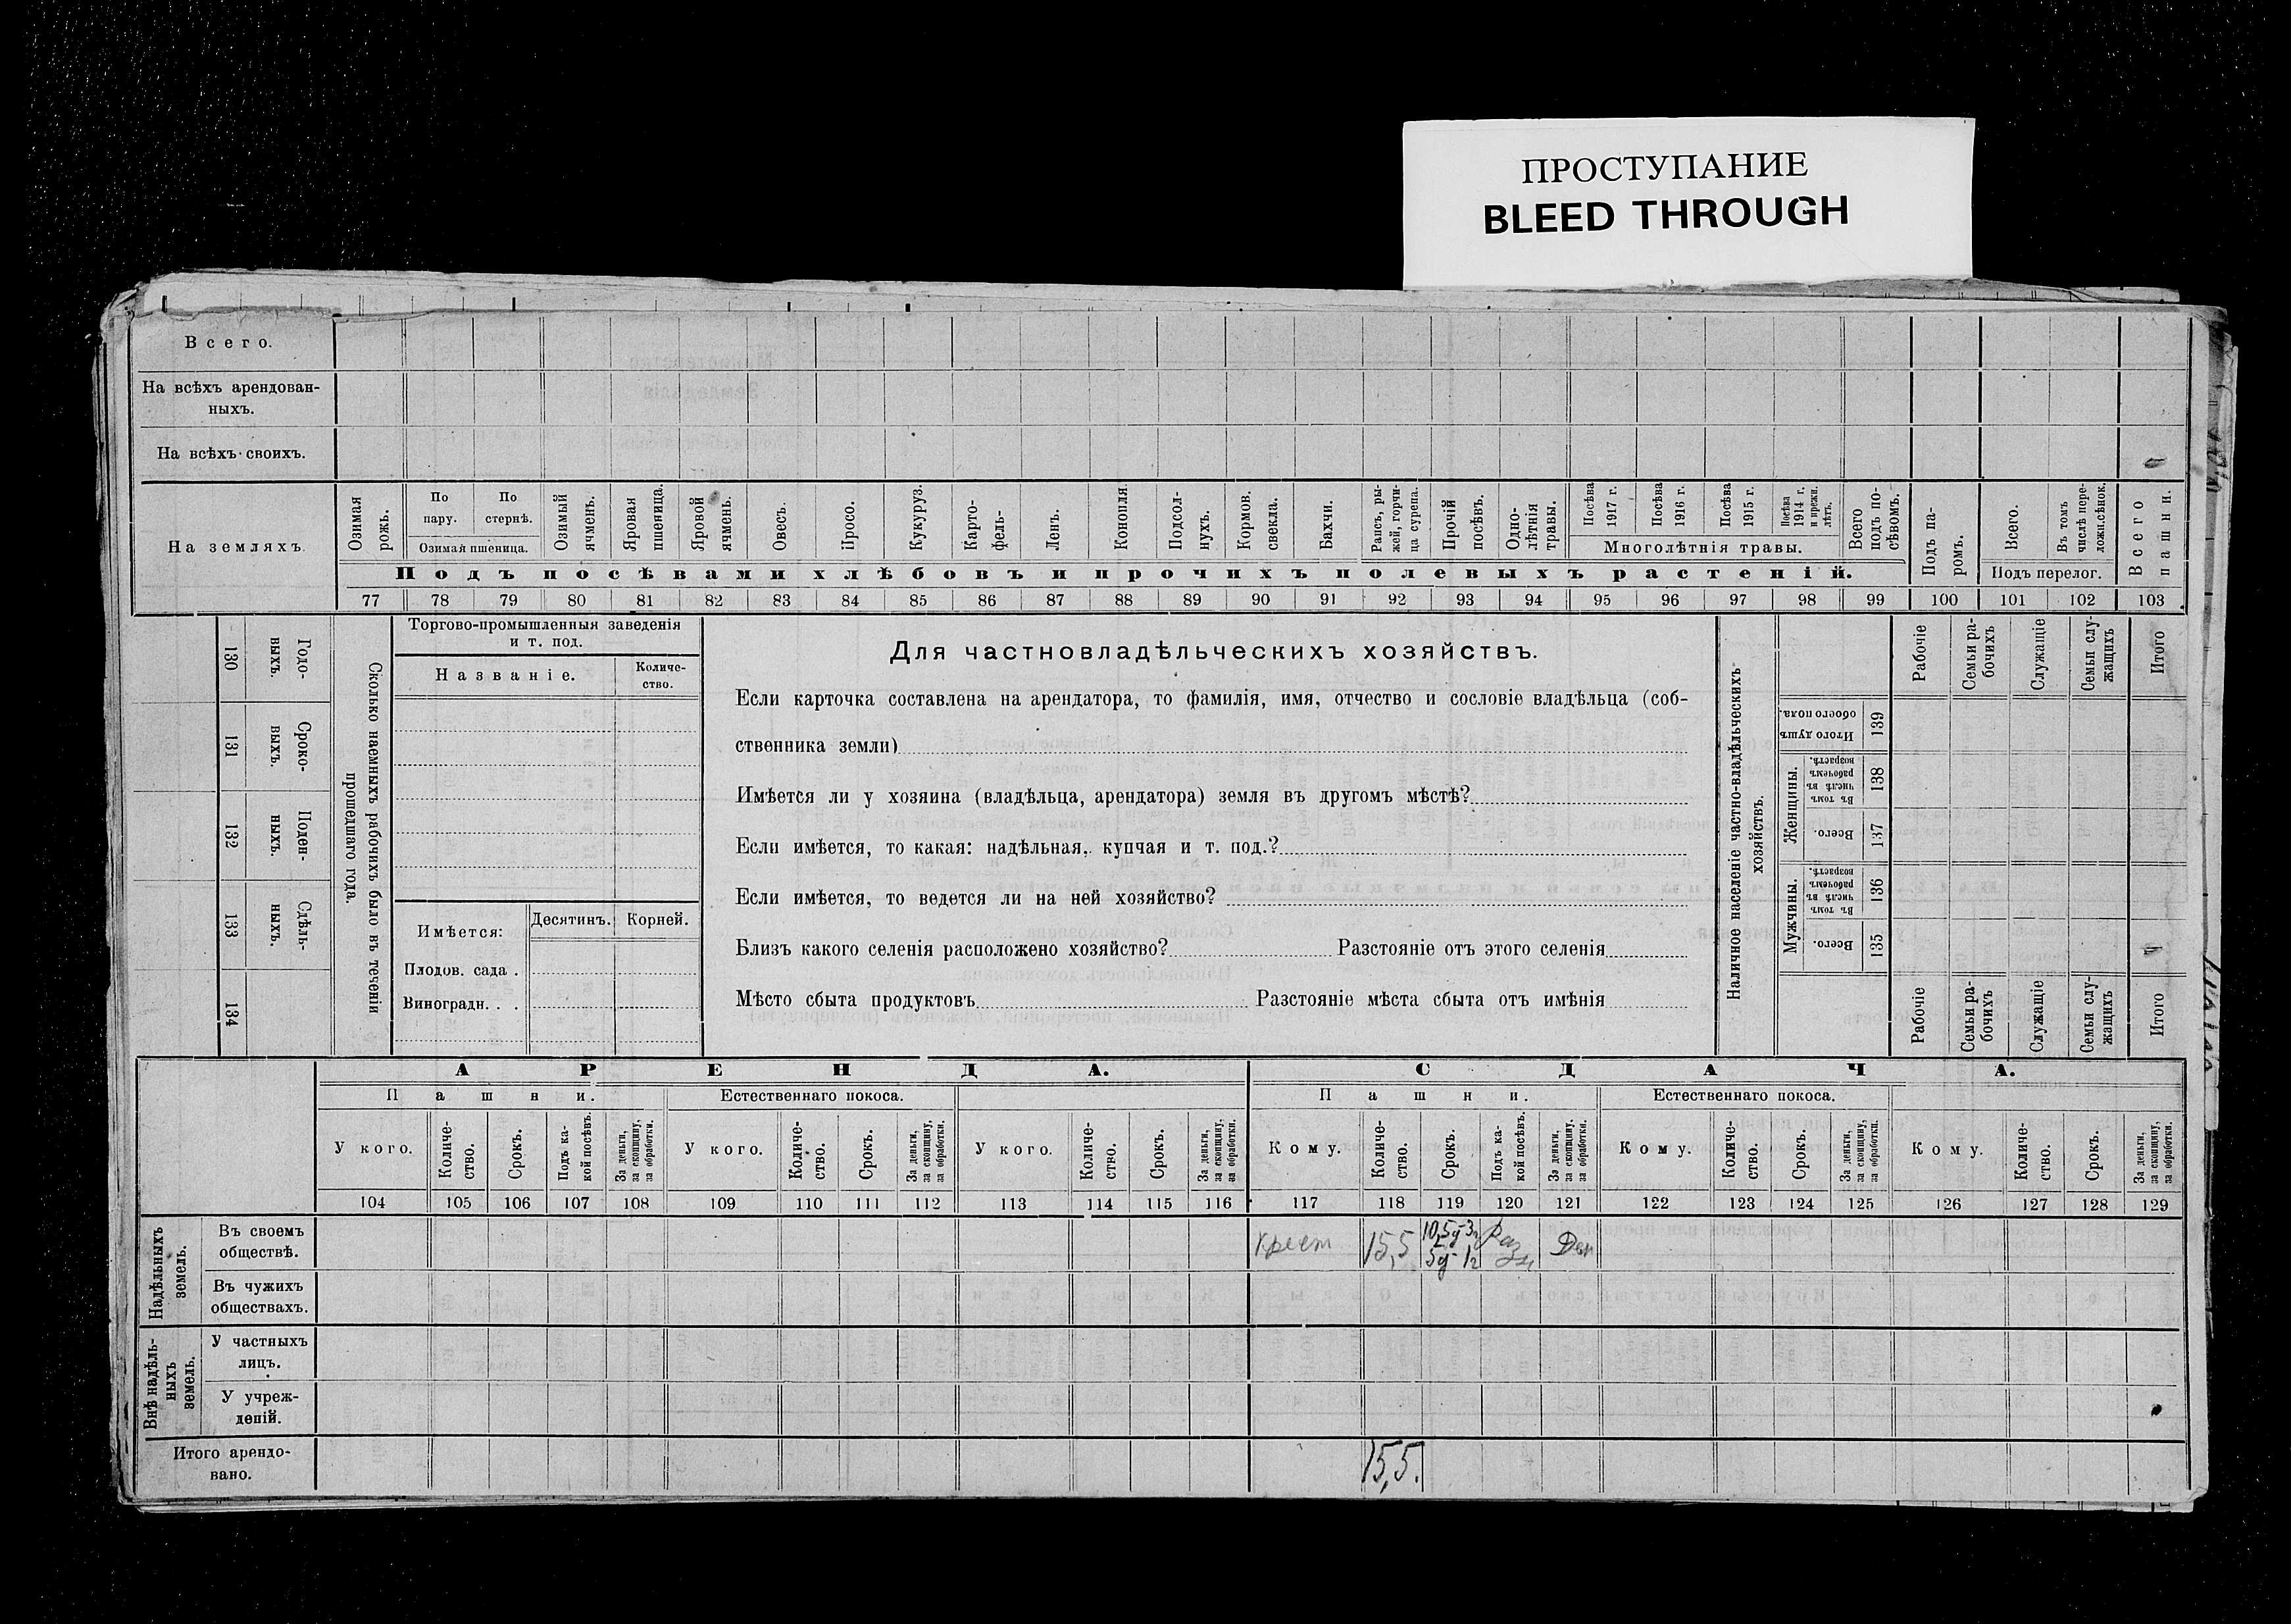 ПРОСТУПАНИЕ
BLEED THROUGH
Всего.
На всѣхъ арендован-
ныхъ.
На всѣхъ своихъ.
На земляхъ.
Озимая рожь.
По пару.
По стернѣ.
Озимая пшеница.
Озимый ячмень.
Яровая пшеница.
Яровой ячмень.
Овесъ.
Просо.
Кукуруз.
Карто-
фель-
Ленъ.
Конопля
Подсол-
нухъ.
Кормов.
свекла.
Бахчи.
Рапсъ, ры-
жей, горчи-
ца сурепа.
Прочій
посѣвъ.
Одно-
лѣтнія
травы.
Посѣва
1917 г.
Посѣва
1916 г.
Посѣва
1915 г.
Посѣва
1914 г.
и прежн.
лѣтъ.
Многолѣтнія травы.
Всего
подъ по-
сѣвомъ.
Подъ па-
ромъ.
Всего.
Въ томъ
числѣ пере-
ложн.сѣнок.
Подъ перелог.
Всего
пашни.
Подъ посѣвами хлѣбовъ и прочихъ полевыхъ растеній.
77 78 79 80 81 82 83 84 85 86 87 88 89 90 91 92 93 94 95 96 97 98 99 100 101 102 103
130 Годо-
выхъ.
131 Сроко-
выхъ.
132 Поден-
ныхъ.
133 Сдѣль-
ныхъ.
134
Сколько наемныхъ рабочихъ было въ теченіи
прошедшаго года.
Торгово-промышленныя заведенія
и т. под.
Названіе.
Количе-
ство.
Имѣется:
Десятинъ.
Корней.
Плодов. сада .
Виноградн. . .
Для частновладѣльческихъ хозяйствъ.
Если карточка составлена на арендатора, то фамилія, имя, отчество и сословіе владѣльца (соб-
ственника земли)
Имѣется ли у хозяина (владѣльца, арендатора) земля въ другомъ мѣстѣ?
Если имѣется, то какая: надѣльная, купчая и т. под.?
Если имѣется, то ведется ли на ней хозяйство?
Близъ какого селенія расположено хозяйство? Разстояніе отъ этого селенія
Мѣсто сбыта продуктовъ Разстояніе мѣста сбыта отъ имѣнія
Наличное населеніе частно-владѣльческихъ
хозяйствъ.
Рабочіе
Семьи ра-
бочихъ
Служащіе
Семьи слу-
жащихъ
Итого
Итого душъ
обоего пола.
139
Женщины.
Въ томъ
числѣ въ
рабочемъ
возрастѣ.
138
Всего.
137
Мужчины.
Въ томъ
числѣ въ
рабочемъ
возрастѣ.
136
Всего.
135
Рабочіе
Семьи ра-
бочихъ
Служащіе
Семьи слу-
жащихъ
Итого
АРЕНДА.
СДАЧА.
Пашни.
Естественнаго покоса.
Пашни.
Естественнаго покоса.
У кого.
Количе-
ство.
Срокъ.
Подъ ка-
кой посѣвъ.
За деньги,
за скопщину,
за обработки.
У кого.
Количе-
ство.
Срокъ.
За деньги,
за скопщину,
за обработки.
У кого.
Количе-
ство.
Срокъ.
За деньги,
за скопщину,
за обработки.
Кому.
Количе-
ство.
Срокъ.
Подъ ка-
кой посѣвъ.
За деньги,
за скопщину,
за обработки.
Кому.
Количе-
ство.
Срокъ.
За деньги,
за скопщину,
за обработки.
Кому.
Количе-
ство.
Срокъ.
За деньги,
за скопщину,
за обработки.
104 105 106 107 108 109 110 111 112 113 114 115 116 117 118 119 120 121 122 123 124 125 126 127 128 129
Надѣльныхъ
земель.
Въ своемъ
обществѣ.
Крест 15,5 Ден
Въ чужихъ
обществахъ.
Внѣ надѣль-
ныхъ
земель.
У частныхъ
лицъ.
У учреж-
деній.
Итого арендо-
вано.
15,5.